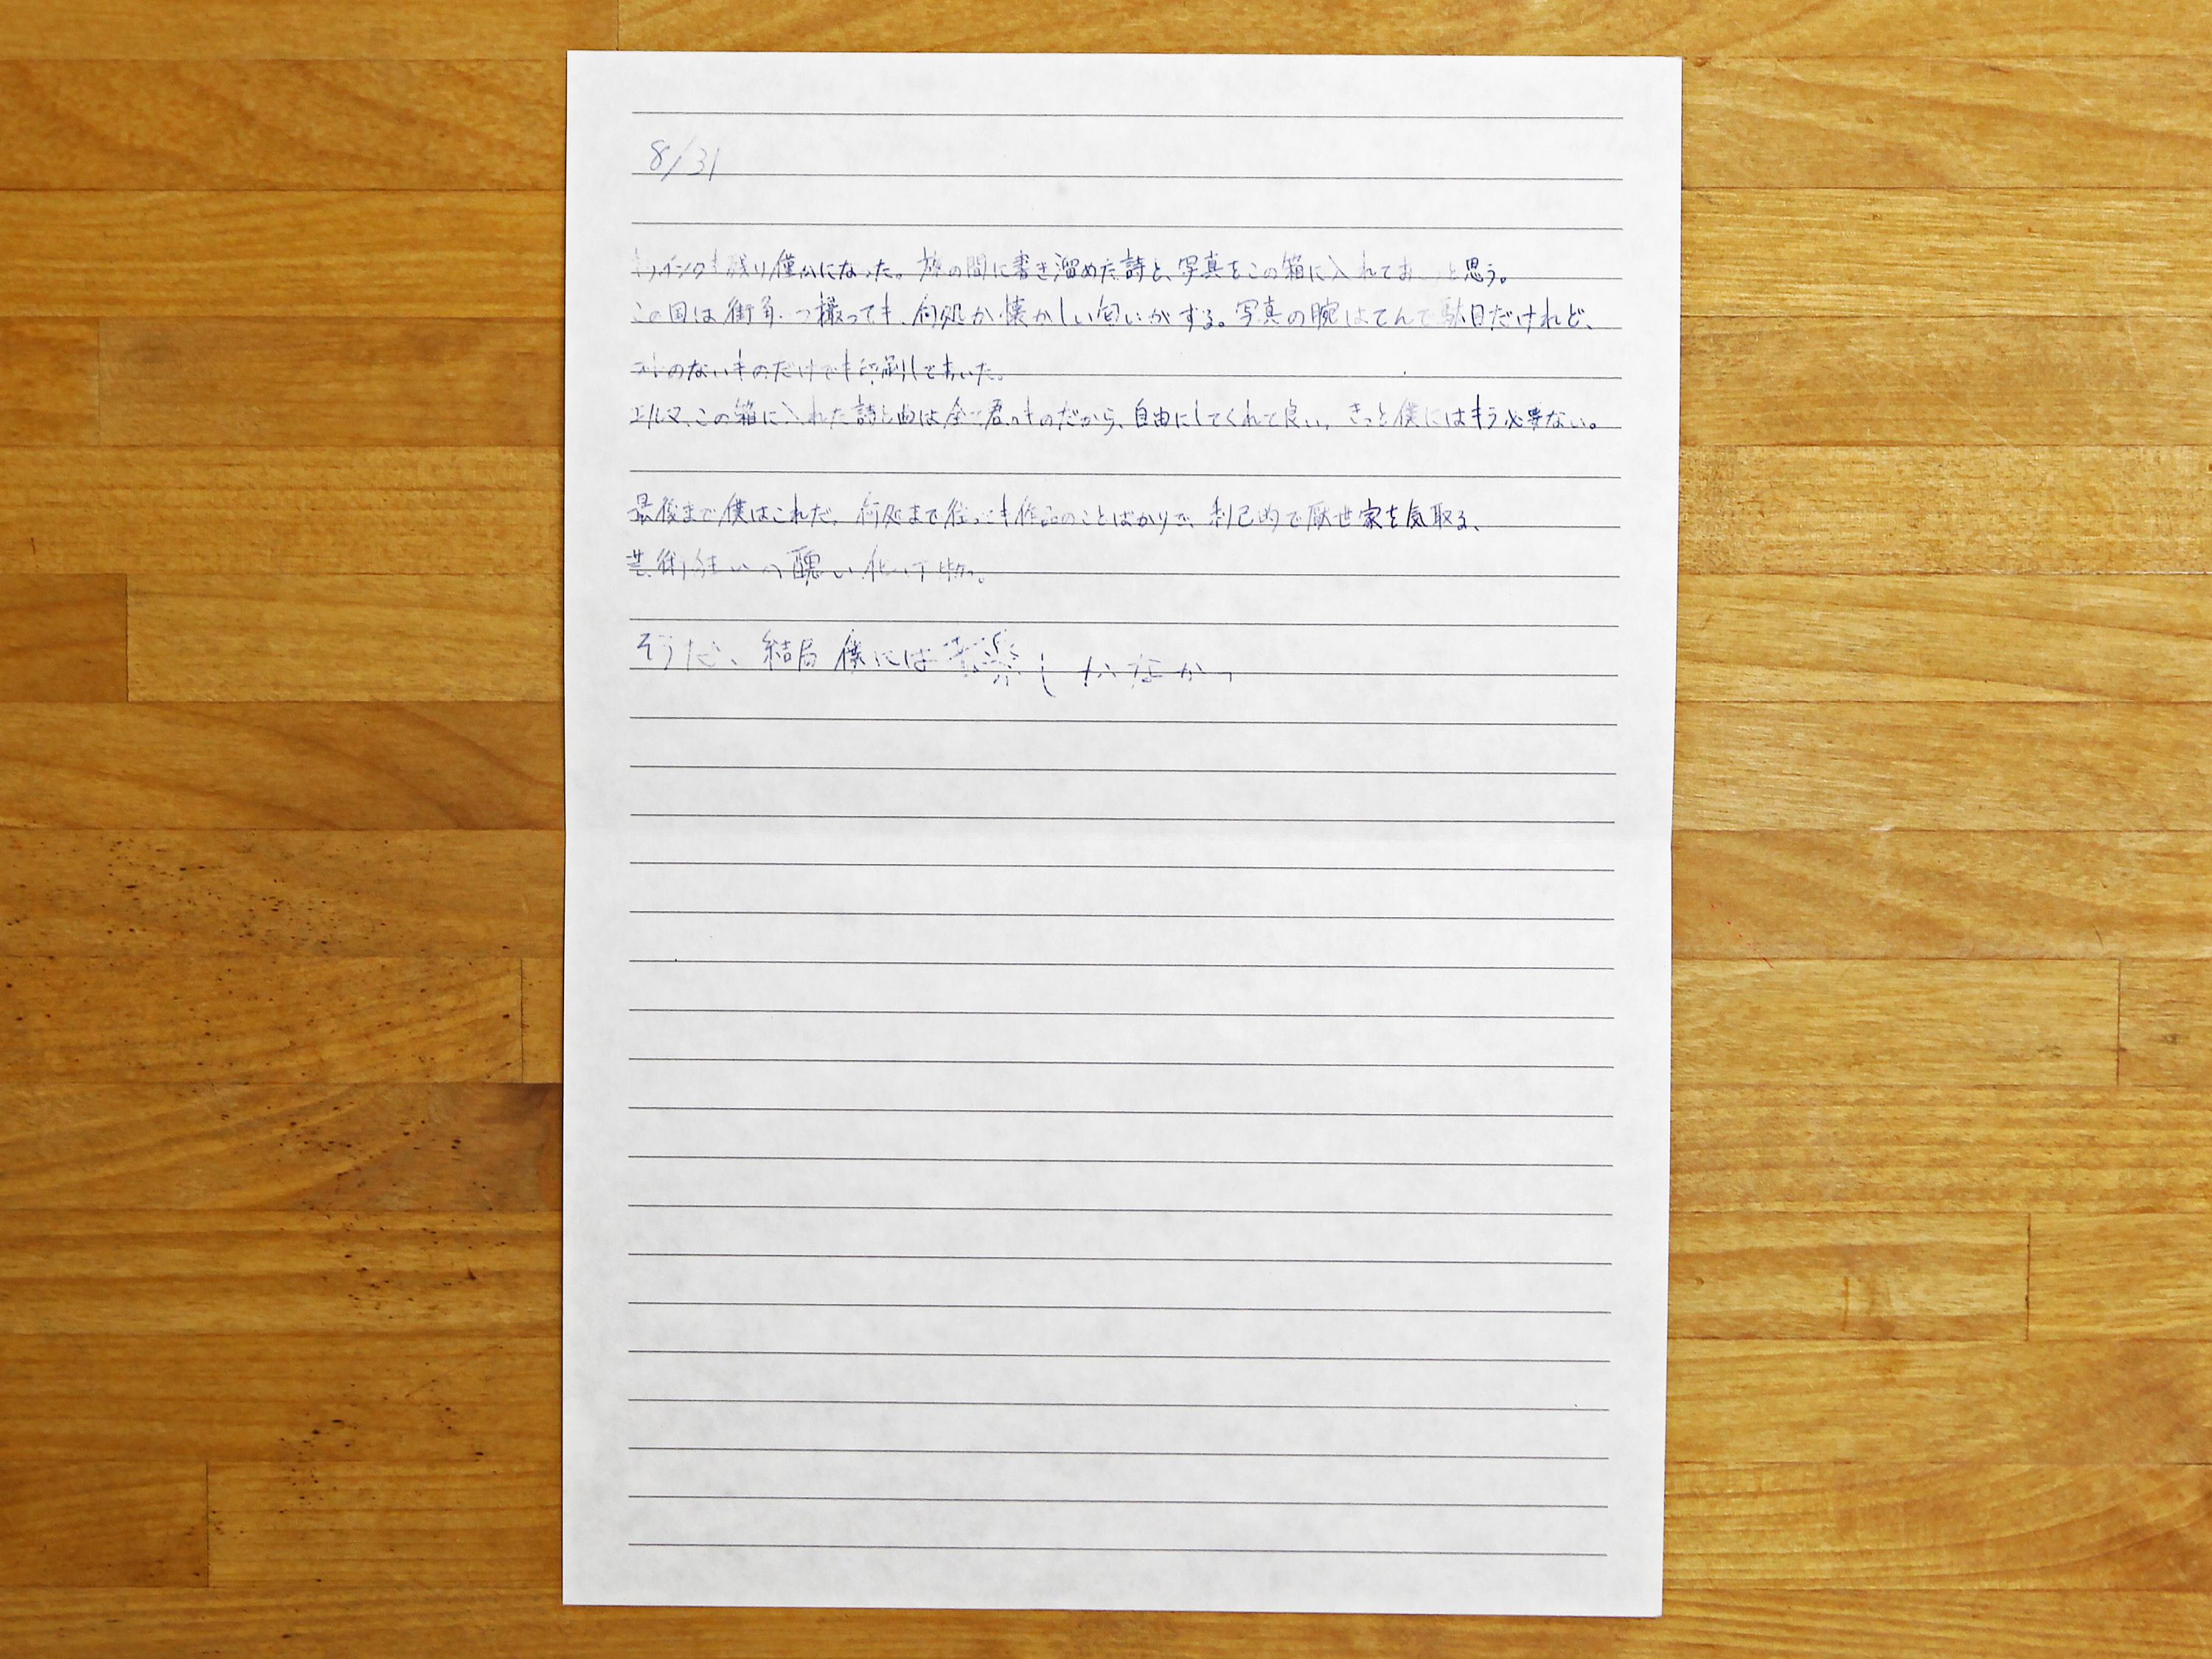 8/31
もうインクも残り僅かになった。旅の間に書き溜めた詩と、写真をこの箱に入れておこうと思う。
この国は街角一つ撮っても、何処か懐かしい匂いがする。写真の腕はてんで駄目だけれど、
のないものだけでも印刷しておいた。
エルマ、この箱に入れた詩と曲は全て君のものだから、自由にしてくれて良い。きっと僕にはもう必要ない。
最後まで僕はこれだ。何処まで行っても作品のことばかりで、利己的で厭世家を気取る、
芸術狂いの醜い化け物。
そうだ、結局僕には音楽しかなかっ